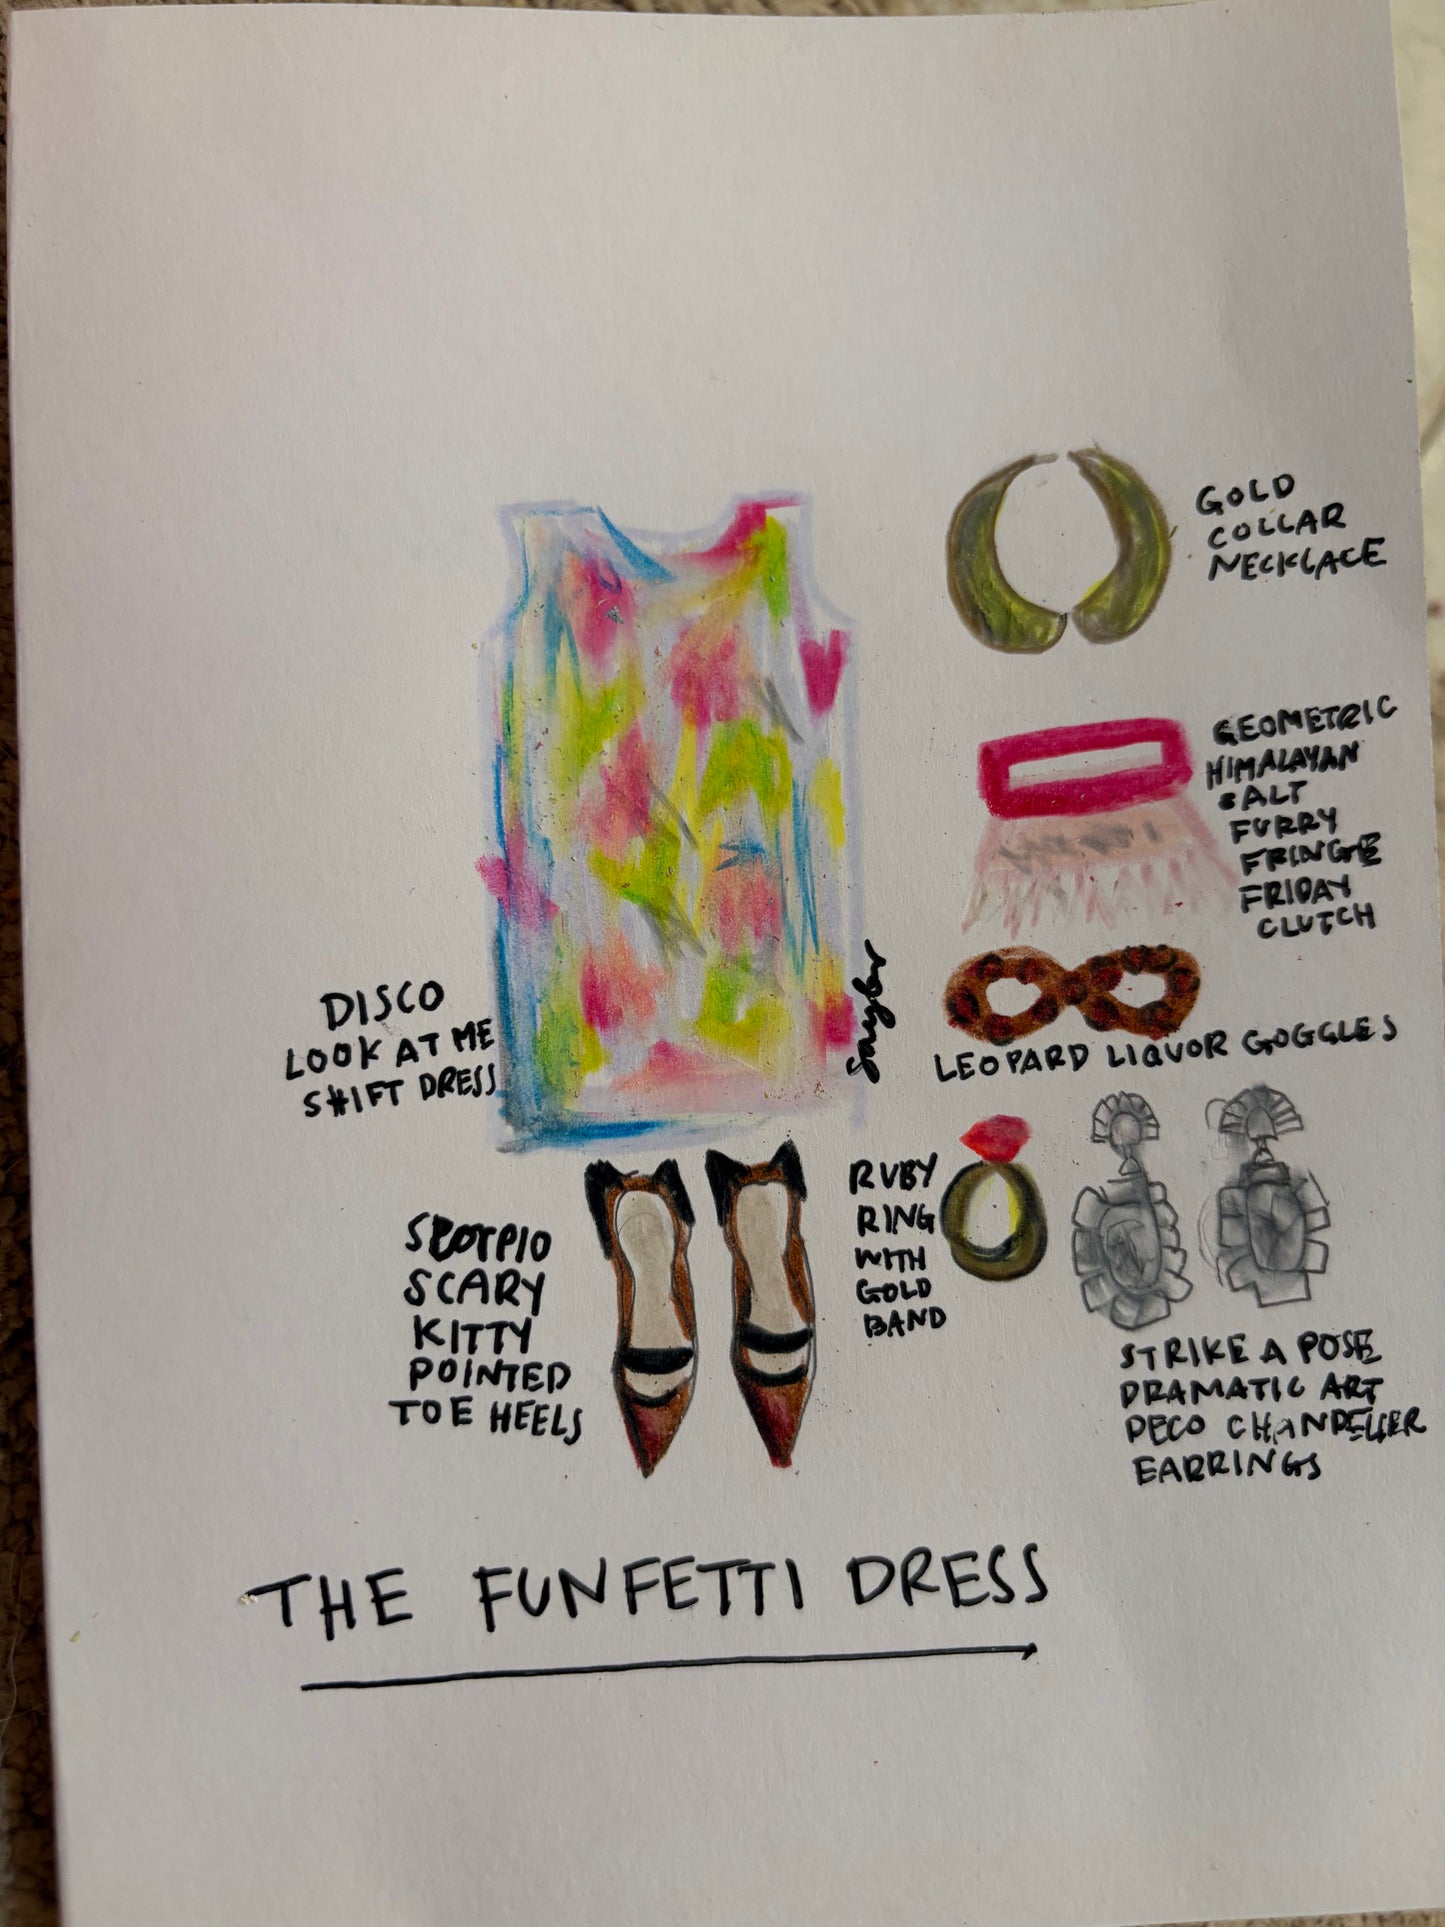 GOLD
COLLAR
NECKLACE
GEOMETRIC
HIMALAYAN
SALT
FURRY
FRINGE
FRIDAY
CLUTCH
DISCO
LOOK AT ME
SHIFT DRESS
LEOPARD LIQUOR GOGGLES
SCORPIO
SCARY
KITTY
POINTED
TOE HEELS
RUBY
RING
WITH
GOLD
BAND
STRIKE A POSE
DRAMATIC ART
DECO CHANDELIER
EARRINGS
THE FUNFETTI DRESS